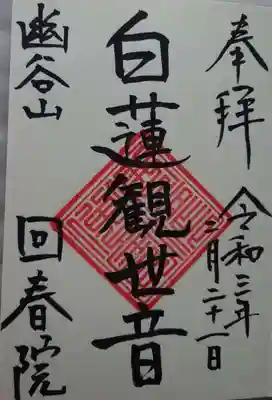 奉拝
令和三年
二月二十一日
白蓮観世音
幽谷山
回春院